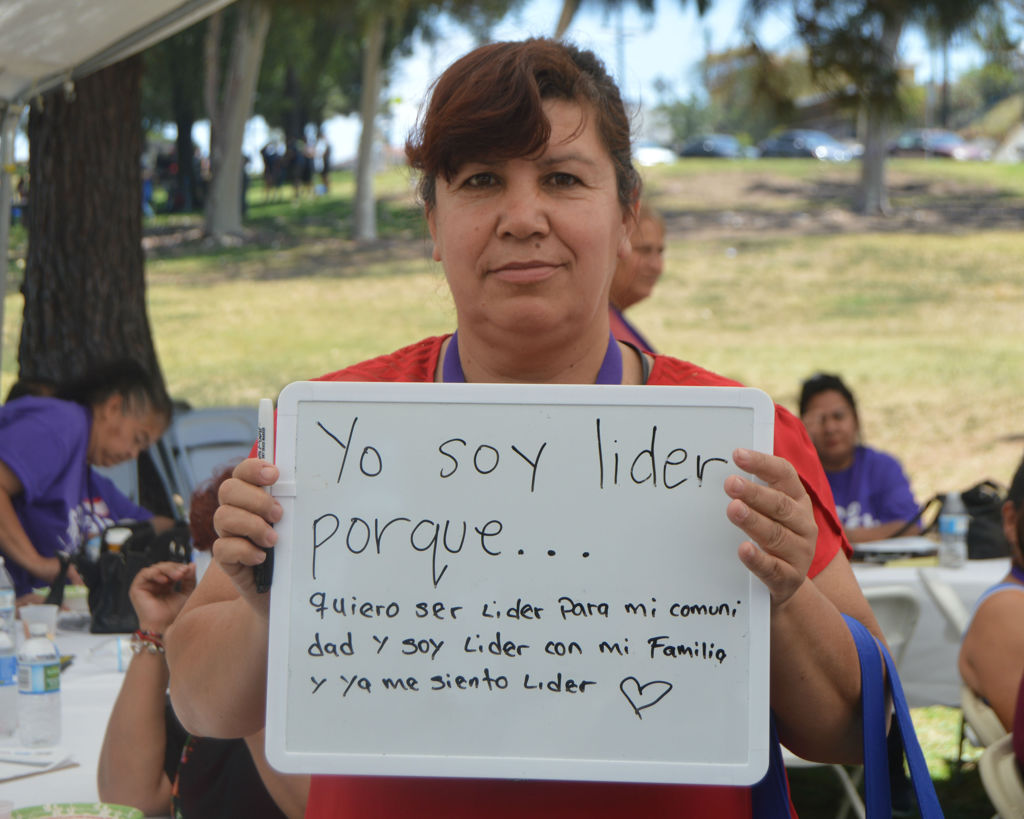 Yo soy lider
porque...
quiero ser Lider Para mi comuni
dad Y soy Lider con mi Familia
y ya me siento Lider